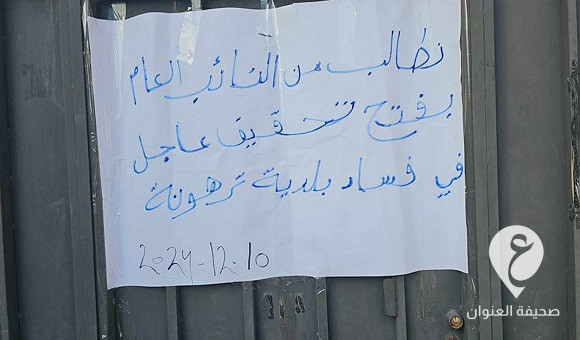 نطالب من النائب العام
بفتح تحقيق عاجل
في فساد بلدية ترهونة
2024-12.10
صحيفة العنوان